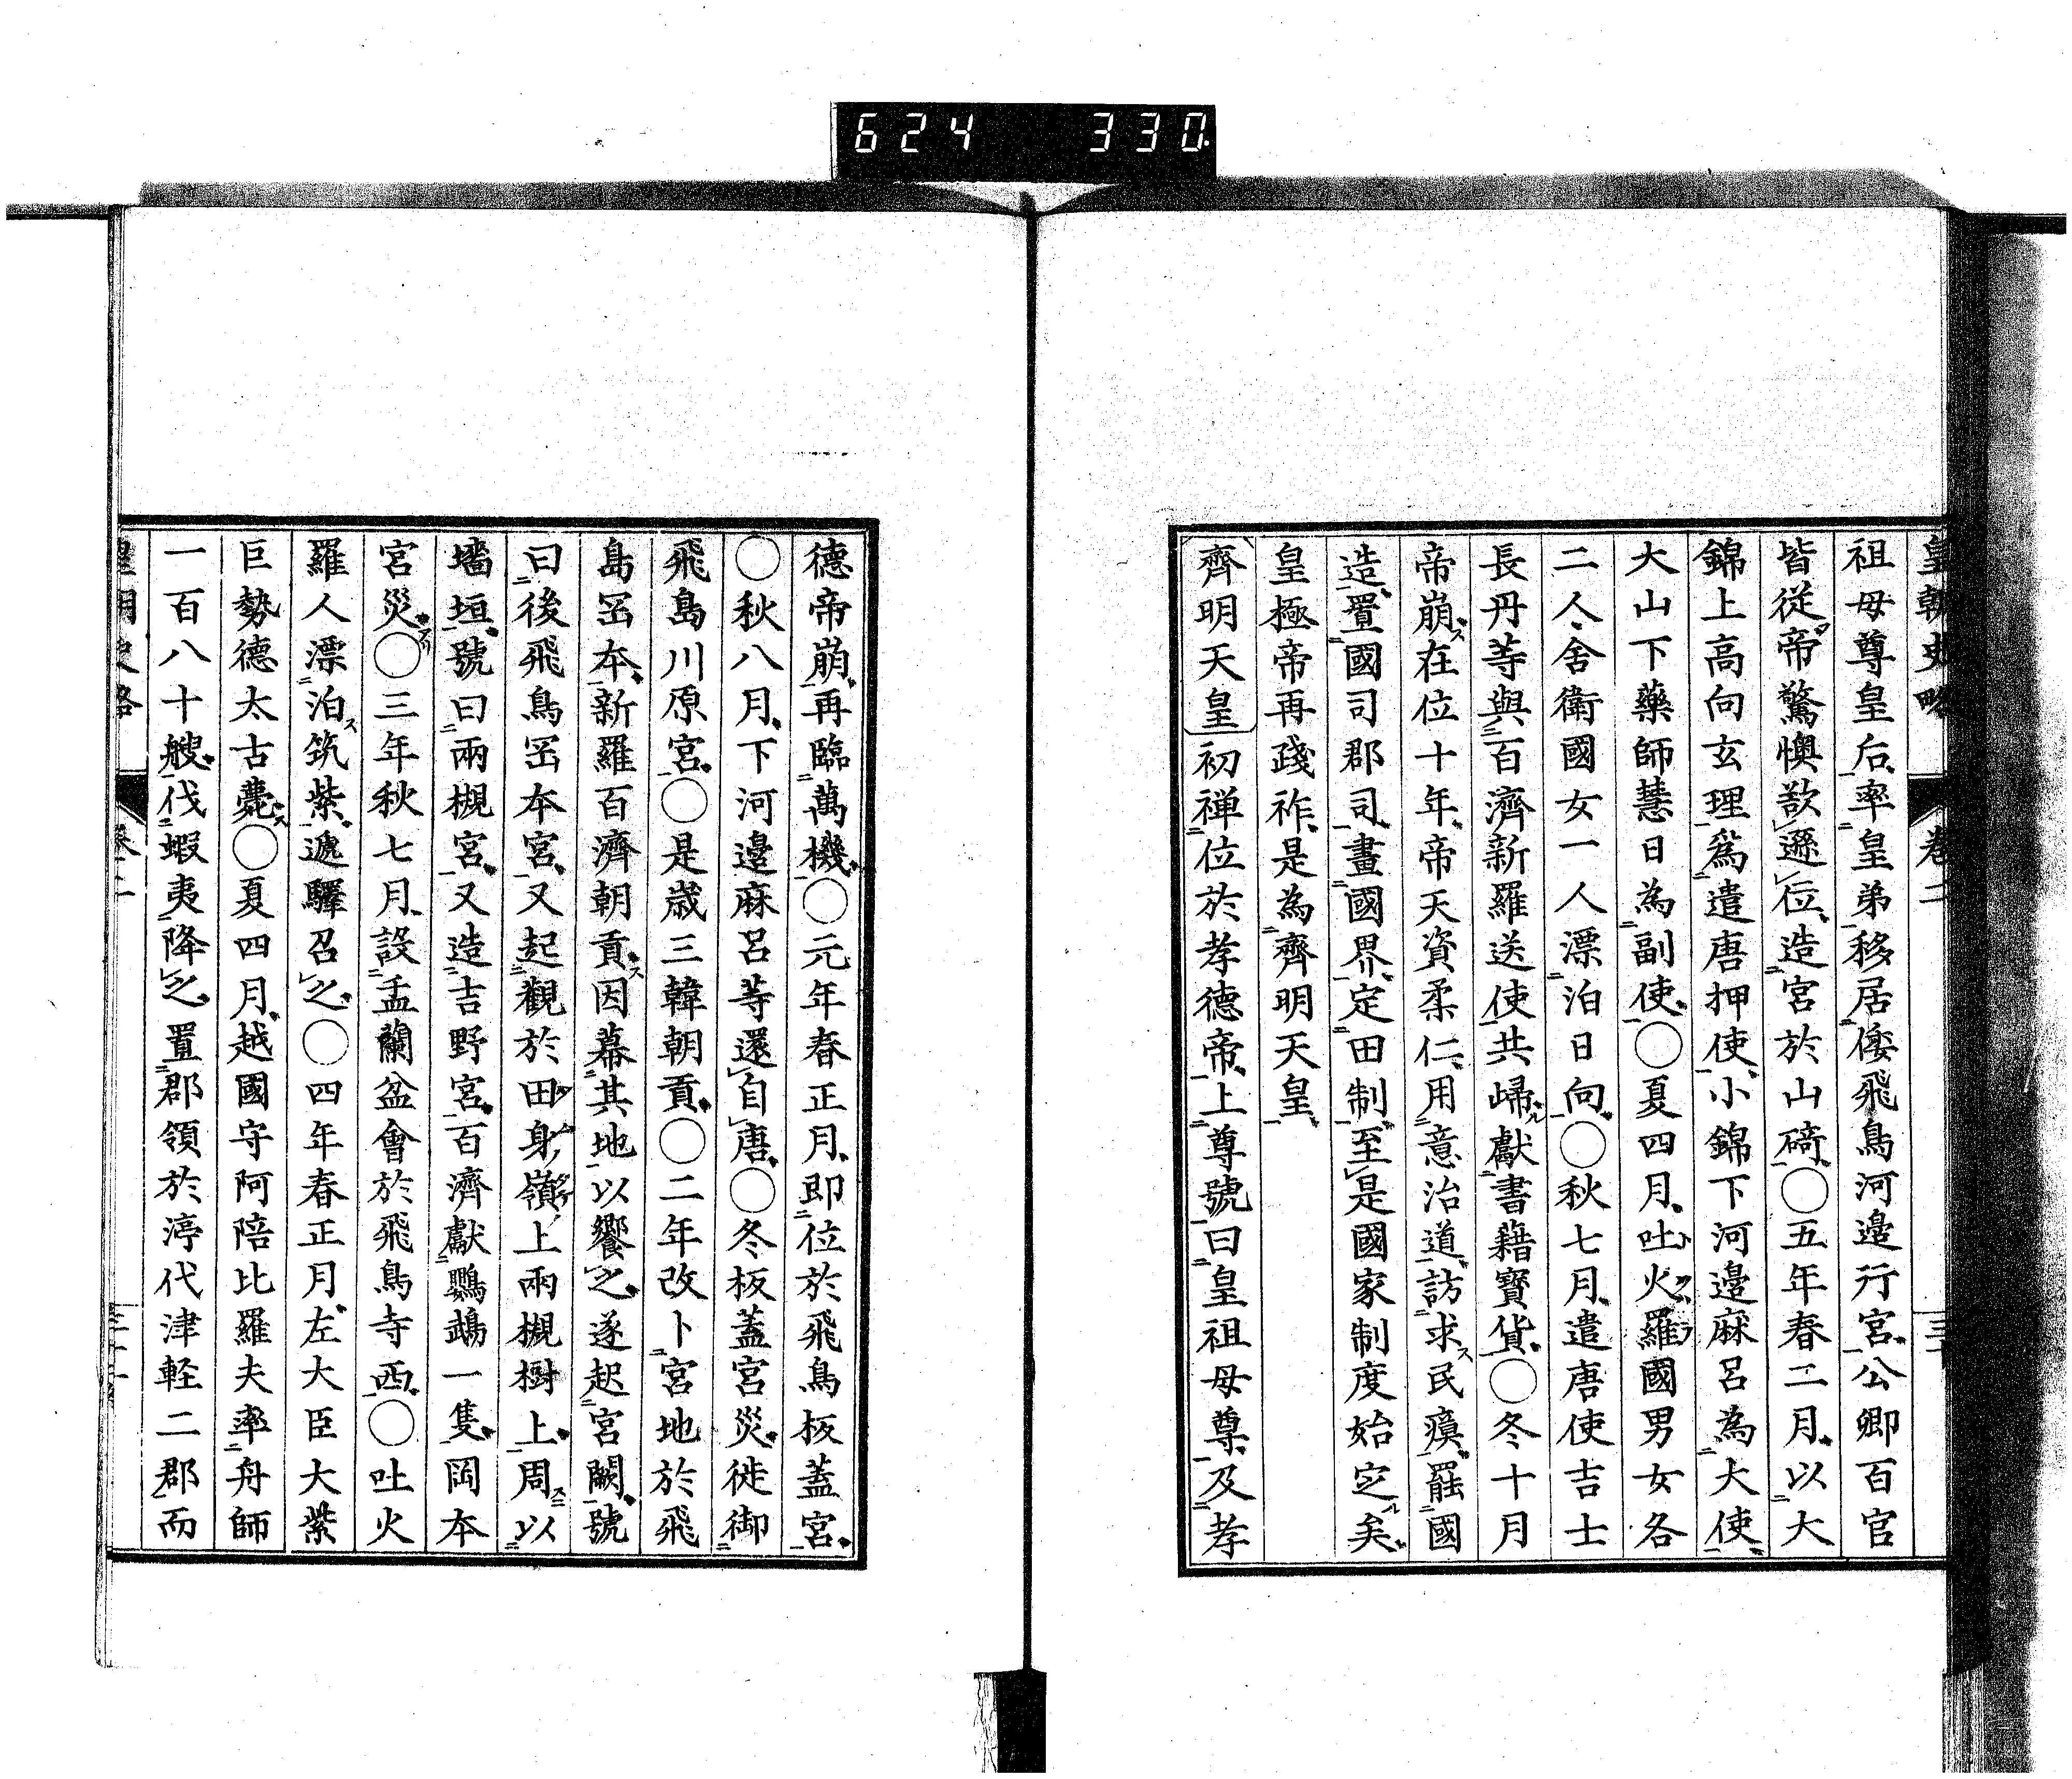 624 330
皇朝史略 卷二
祖母尊皇后率皇弟移居倭飛鳥河邊行宮公卿百官
皆從帝驚懊欲遜位造宮於山碕○五年春二月以大
錦上高向玄理爲遣唐押使小錦下河邊麻呂為大使
大山下藥師慧日為副使○夏四月吐火羅國男女各
二人舍衛國女一人漂泊日向○秋七月遣唐使吉士
長丹等與百濟新羅送使共歸獻書籍寶貨○冬十月
帝崩在位十年帝天資柔仁用意治道訪求民瘼罷國
造置國司郡司畫國界定田制至是國家制度始定矣
皇極帝再踐祚是為齊明天皇
齊明天皇初禅位於孝德帝上尊號曰皇祖母尊及孝
德帝崩再臨萬機○元年春正月即位於飛鳥板蓋宮
○秋八月下河邊麻呂等還自唐○冬板蓋宮災徙御
飛島川原宮○是歲三韓朝貢○二年改卜宮地於飛
島岡本新羅百濟朝貢因幕其地以饗之遂起宮闕號
曰後飛鳥岡本宮又起觀於田身嶺上兩槻樹上周以
墻垣號曰兩槻宮又造吉野宮百濟獻鸚鵡一隻岡本
宮災○三年秋七月設盂蘭盆會於飛鳥寺西○吐火
羅人漂泊筑紫遞驛召之○四年春正月左大臣大紫
巨勢德太古薨○夏四月越國守阿陪比羅夫率舟師
一百八十艘伐蝦夷降之置郡領於渟代津軽二郡而